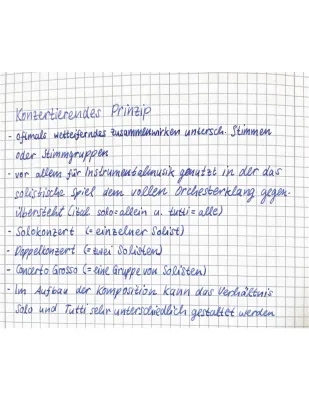 Konzertierendes Prinzip
- oftmals wetteiferndes Zusammenwirken untersch. Stimmen
oder Stimmgruppen
- vor allem für Instrumentalmusik genutzt in der das
solistische Spiel dem vollen Orchesterklang gegen-
übersteht (ital. solo = allein u. tutti = alle)
- Solokonzert (= einzelner Solist)
- Doppelkonzert (= zwei Solisten)
- Concerto Grosso (= eine Gruppe von Solisten)
- Im Aufbau der Komposition kann das Verhältnis
Solo und Tutti sehr unterschiedlich gestaltet werden